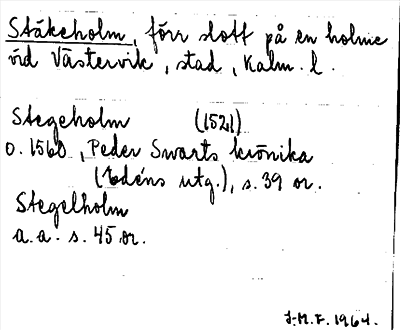 Stäkeholm, förr slott på en holme
vid Västervik, stad, Kalm. l.
Stegeholm (1521)
o. 1560, Peder Swarts krönika
(Edéns utg.), s. 39 or.
Stegelholm
a.a. s. 45 or.
J.M.F. 1964.